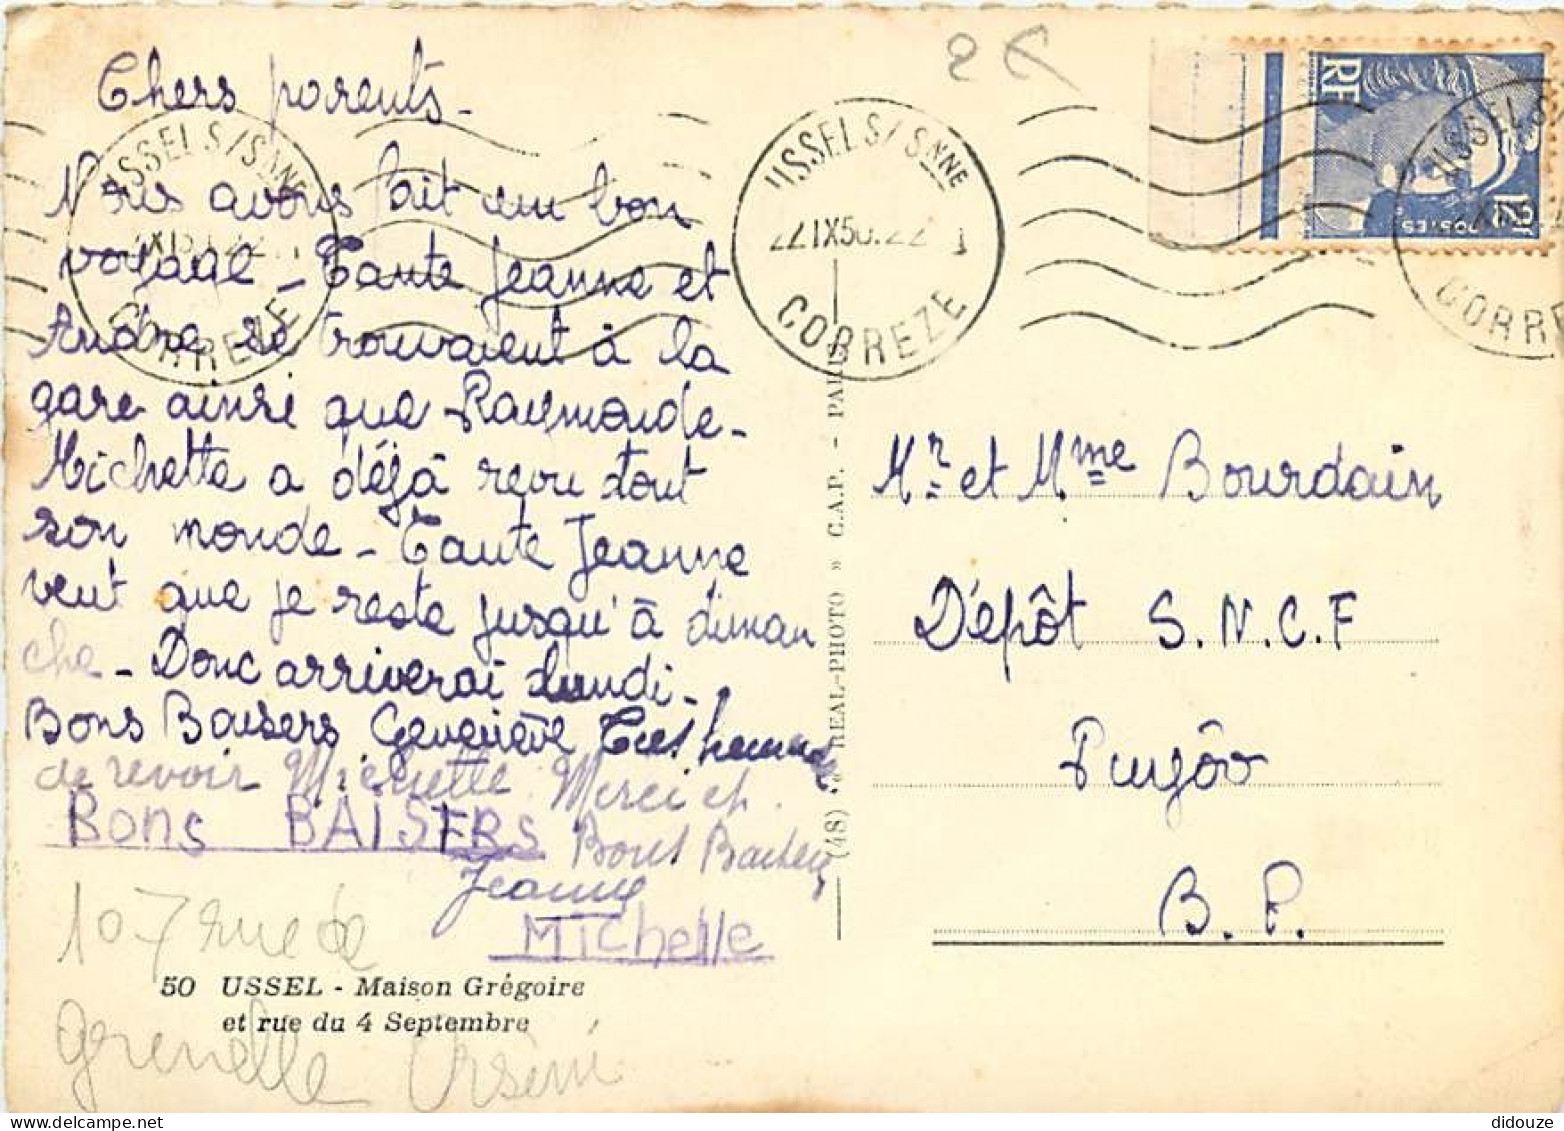 Chers parents -
Nous avons fait un bon
voyage - Tante Jeanne et
Andrée se trouvaient à la
gare ainsi que Raymonde -
Michette a déjà revu tout
son monde - Tante Jeanne
veut que je reste jusqu'à diman
che - Donc arriverai lundi -
Bons Baisers Geneviève Très heureuse
de revoir Michette Merci et
Bons BAISERS Bons Baisers
Jeanne
Michelle
107 rue de
grenelle
50 USSEL - Maison Grégoire
et rue du 4 Septembre
2€
USSEL S/SNNE
CORREZE
USSEL S/SNNE
22 IX 50
CORREZE
RF
12F
POSTES
USSEL S
CORRE
(48) « REAL-PHOTO » C.A.P. - PARIS
Mr et Mme Bourdain
Dépôt S.N.C.F
Puyôo
B.P.
didouze